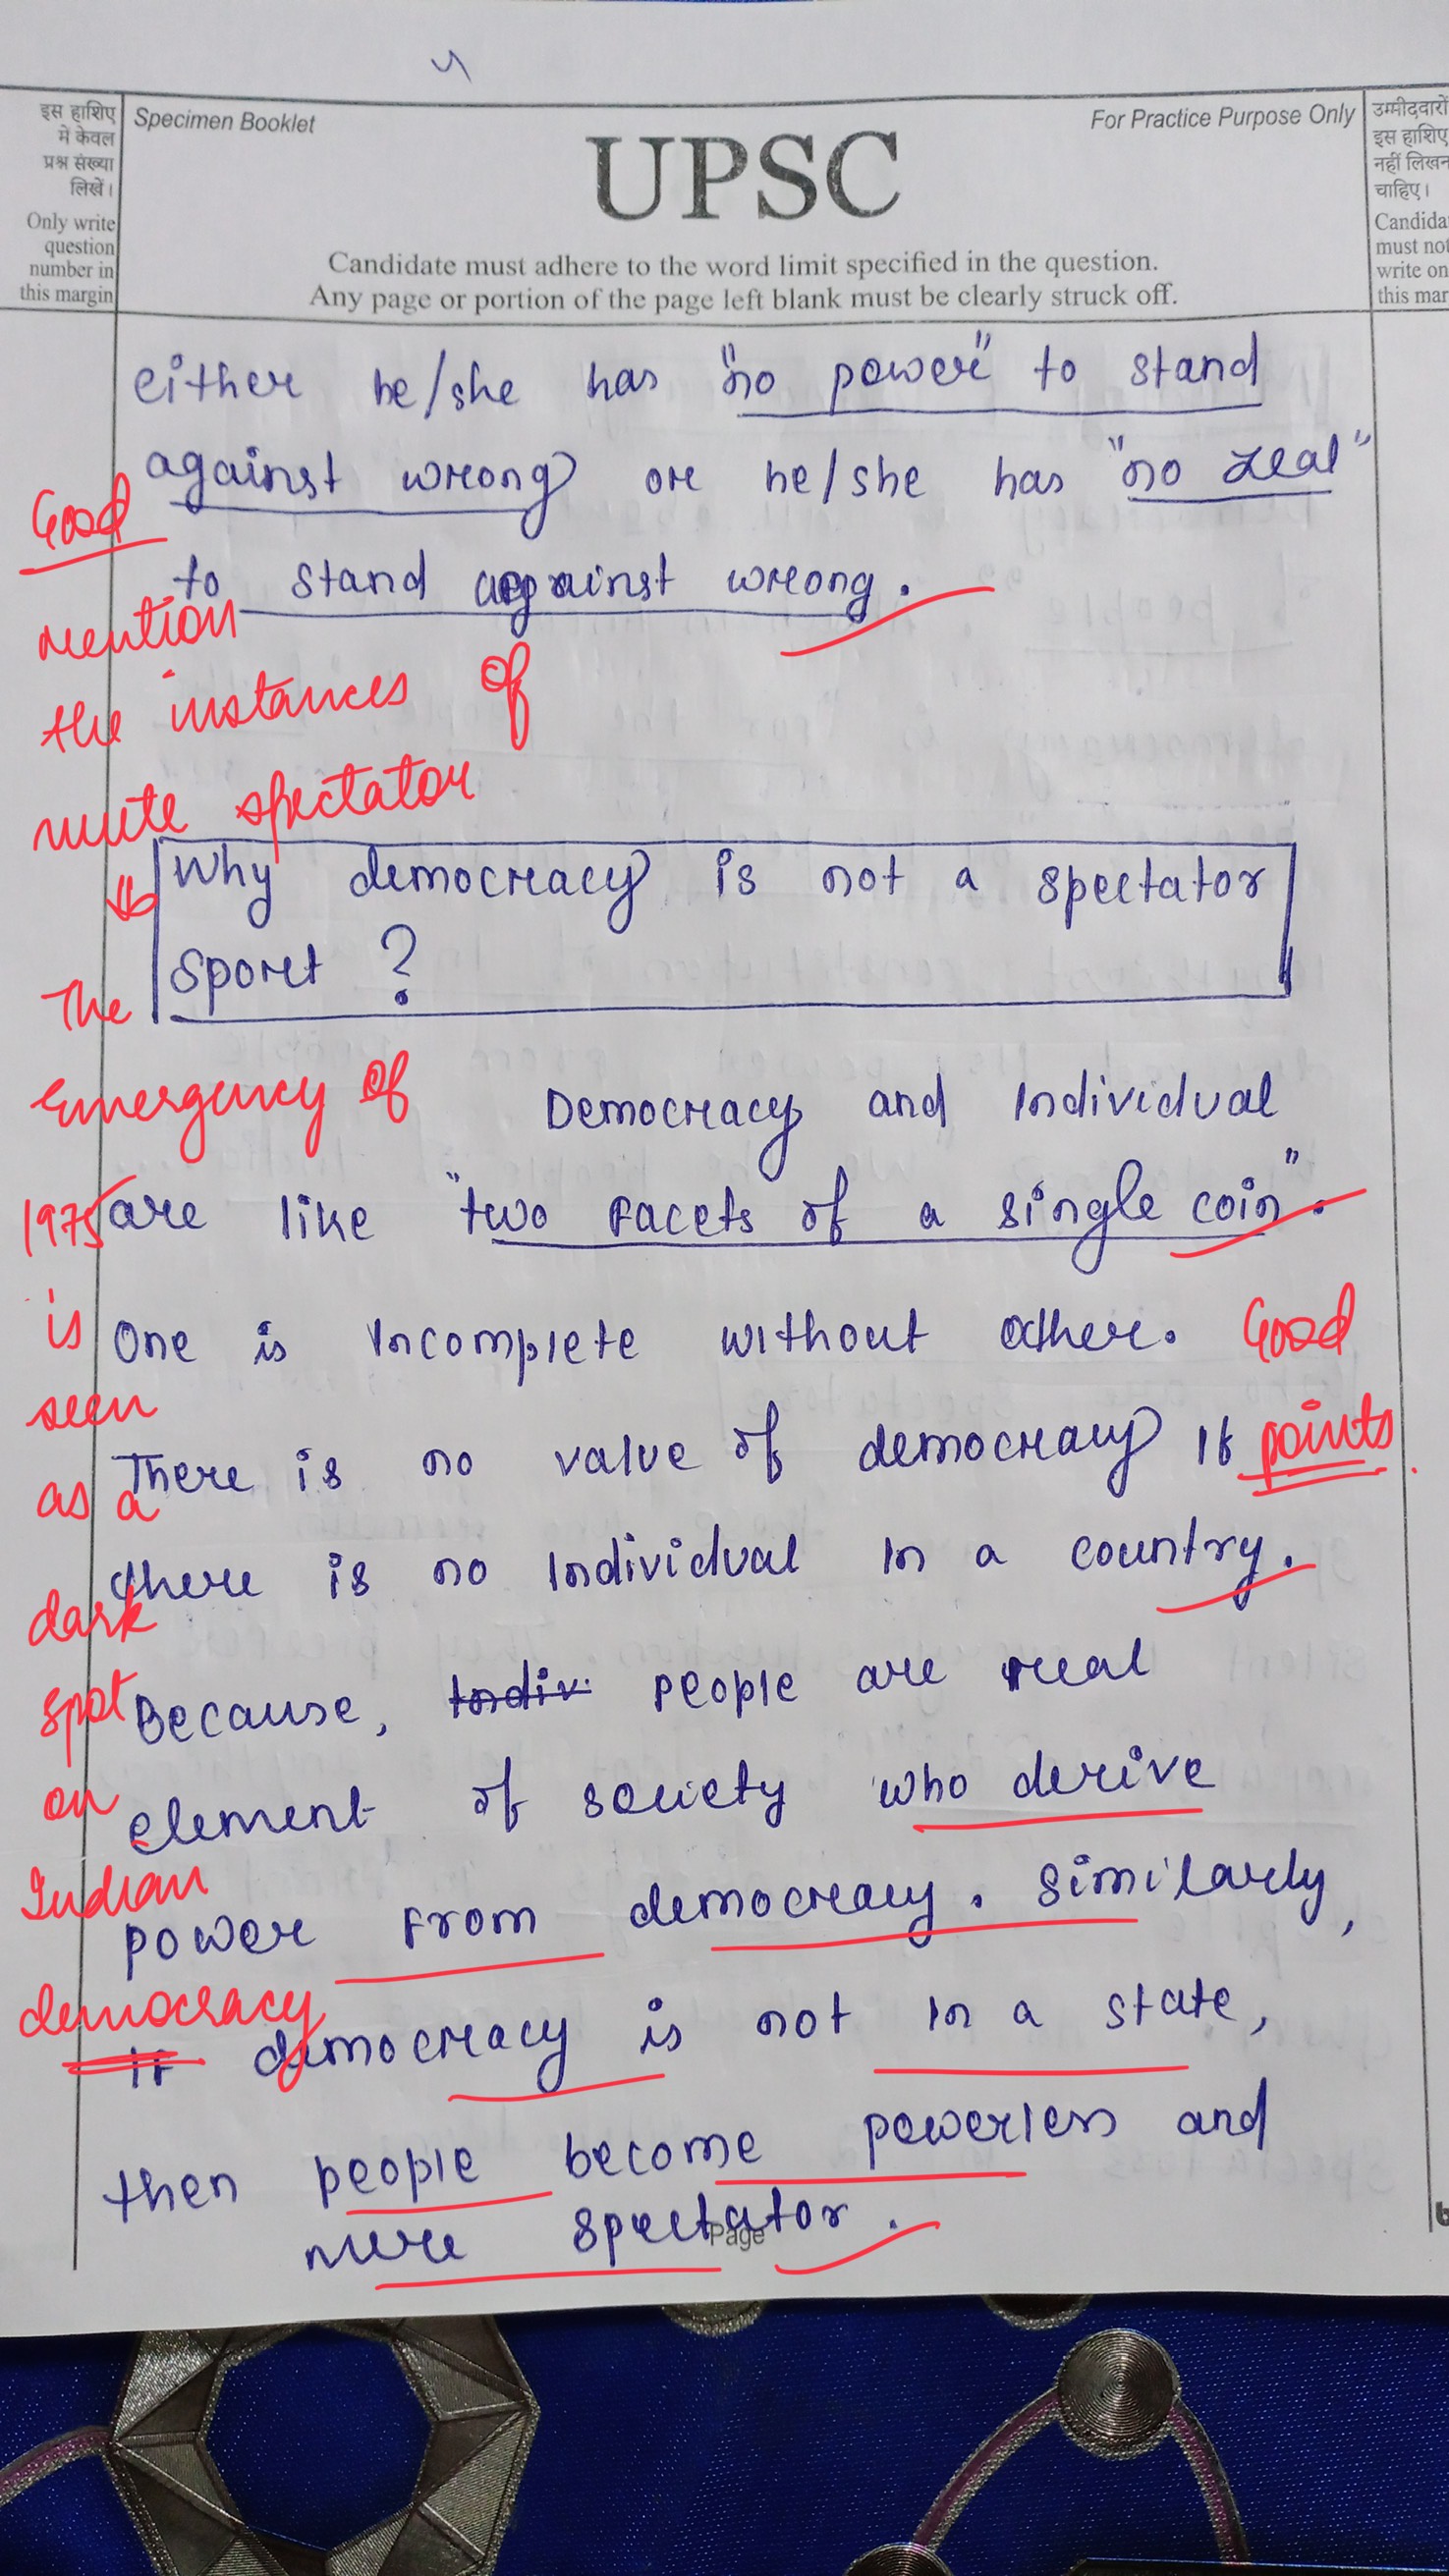 4
इस हाशिए
में केवल
प्रश्न संख्या
लिखें।
Only write
question
number in
this margin
Specimen Booklet
For Practice Purpose Only
UPSC
Candidate must adhere to the word limit specified in the question.
Any page or portion of the page left blank must be clearly struck off.
उम्मीदवारों
इस हाशिए
नहीं लिखन
चाहिए।
Candida
must not
write on
this mar
either he/she has "no power" to stand
against wrong or he/she has "no zeal"
to stand against wrong.
Good
mention
the instances of
mute spectator
Why democracy is not a spectator
sport ?
The
Emergency of
1975
is
seen
as a
dark
spot
on
Indian
democracy
Democracy and Individual
are like "two facets of a single coin".
One is incomplete without other.
Good
points.
There is no value of democracy if
there is no individual in a country.
Because, Indiv. people are real
element of society who derive
power from democracy. Similarly,
If democracy is not in a state,
then people become powerless and
mere spectator.
Page